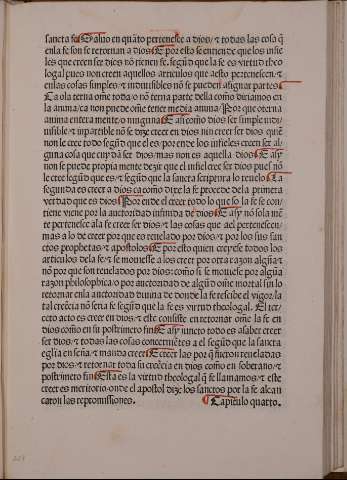 sancta fe. Saluo en quãto pertenesce a dios/ τ todas las cosas q̃
en la fe son se retornan a dios. E por esto se entiende que los infie
les que creen ser dios nõ tienen fe. segũd que la fe es virtud theo
logal pues non creen aquellos articulos que a esto pertenescen/ τ
en las cosas simples/ τ indiuisibles nõ se pueden assignar partes
Ca o la terna oñe toda/ o nõ terna parte della como dezimos en
la anima/ ca non puede oñe tener media anima/ Por que o terna
anima entera mente/ o ninguna E asi como dios ser simple indi-
uisible/ τ inpartible nõ se dize creer en dios nin creer ser dios quẽ
non le cree todo segũd que el es/ por ende los infieles creen ser al
guna cosa que cuydan ser dios/ mas non es aquella dios E asy
non se puede propia mente dezir que el infiel cree ser dios pues nõ
le cree segũd que es/ τ segũd que la sancta scriptura lo reuelo La
segunda es creer a dios ca como dixe la fe procede de la primera
verdad que es dios Por ende el creer todo lo que so la fe se con/
tiene viene por la auctoridad infinita de dios E asy nõ sola mẽ
te pertenesce a la fe creer ser dios/ τ las cosas que a el pertenescen/
mas a lo de creer por que es reuelado por dios/ τ por los sus san
ctos prophetas/ τ apostolos E por esto quien creyese todos los
articulos de la fe/ τ se mouiesse a los creer por otra razon algũa/ τ
nõ por que son reuelados por dios: como si se mouiesse por algũa
razon philosophica/ o por auctoridad de algũd oñe mortal sin lo
retornar en la auctoridad diuina de donde la fe rescibe el vigor/ la
tal creencia nõ seria fe segũd que la fe es virtud theologal. El ter/
cero acto es creer en dios/ τ este consiste en retornar oñe la fe en
dios como en su postrimero fin E asy iuncto todo es a saber creer
ser dios/ τ todas las cosas concernientes a el segũd que la sancta
eglia en seña/ τ manda creer E creer las por q̃ fueron reueladas
por dios/ τ retornar toda su creẽcia en dios como en soberano/ τ
postrimero fin Esta es la virtud theologal q̃ fe llamamos/ τ este
creer es meritorio/ onde el apostol diz: los sanctos por la fe alcan
çaron las repromissiones. Capitulo quarto.